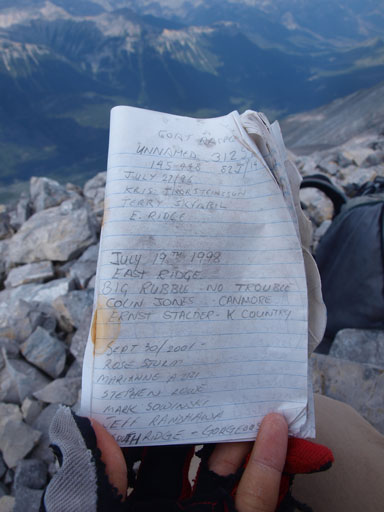 GOAT
UNNAMED 312
82J/
JULY 27/86
KRIS
TERRY
E. RIDGE
JULY 19TH 1998
EAST RIDGE
BIG RUBBLE - NO TROUBLE
COLIN JONES - CANMORE
ERNST STALDER - K COUNTRY
SEPT 30/2001 -
ROSE STURM
MARIANNE
STEPHEN LOWE
MARK SOWINSKI
JEFF
RIDGE - GORGEOUS